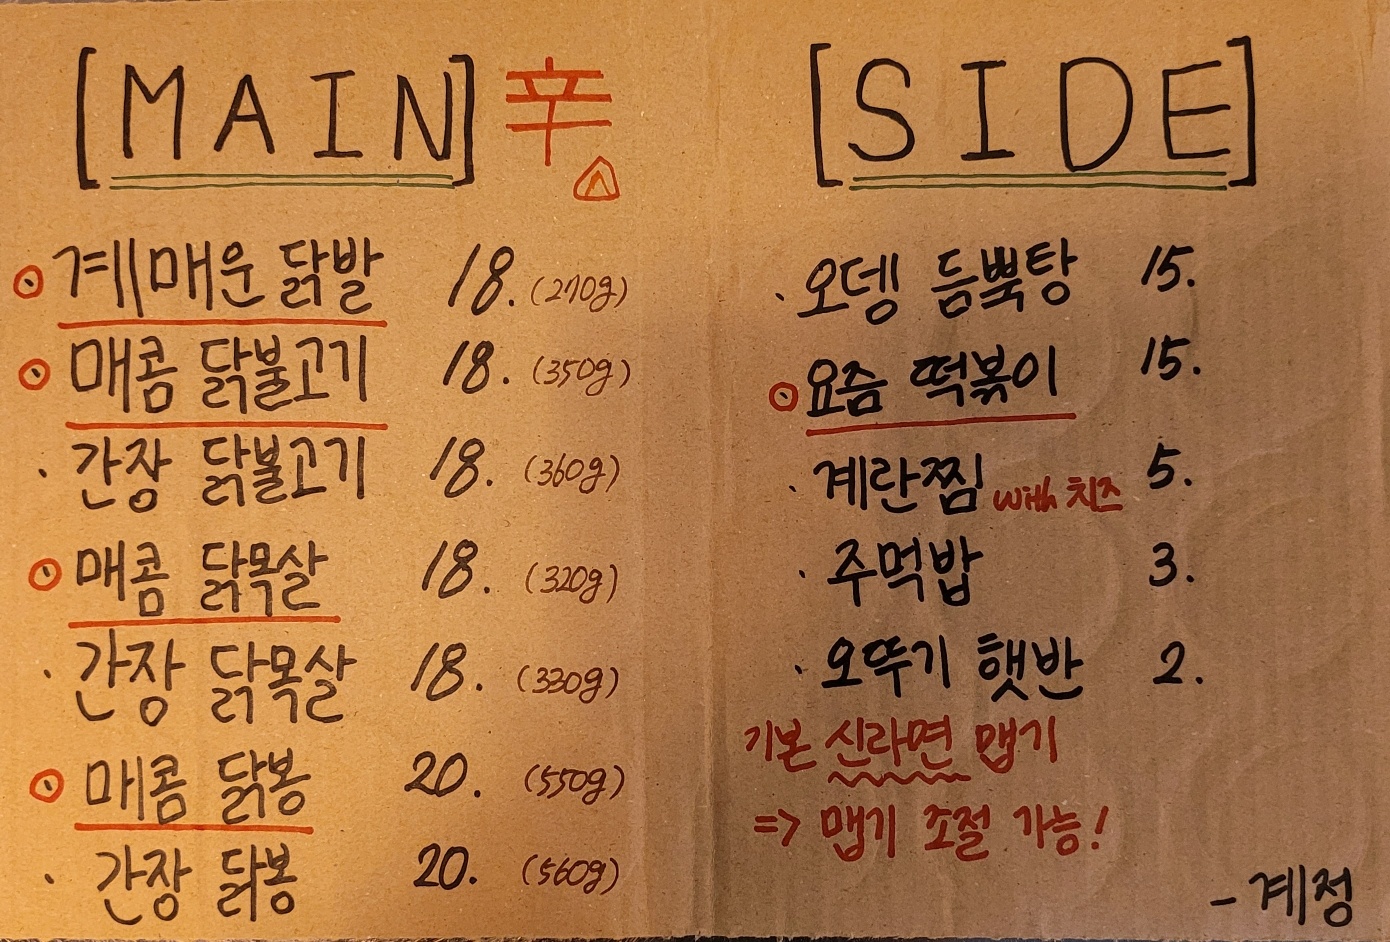 [MAIN] 辛
계매운 닭발 18. (270g)
매콤 닭불고기 18. (350g)
간장 닭불고기 18. (360g)
매콤 닭목살 18. (320g)
간장 닭목살 18. (330g)
매콤 닭봉 20. (550g)
간장 닭봉 20. (560g)
[SIDE]
오뎅 듬뿍탕 15.
요즘 떡볶이 15.
계란찜 with 치즈 5.
주먹밥 3.
오뚜기 햇반 2.
기본 신라면 맵기
=> 맵기 조절 가능!
- 계정